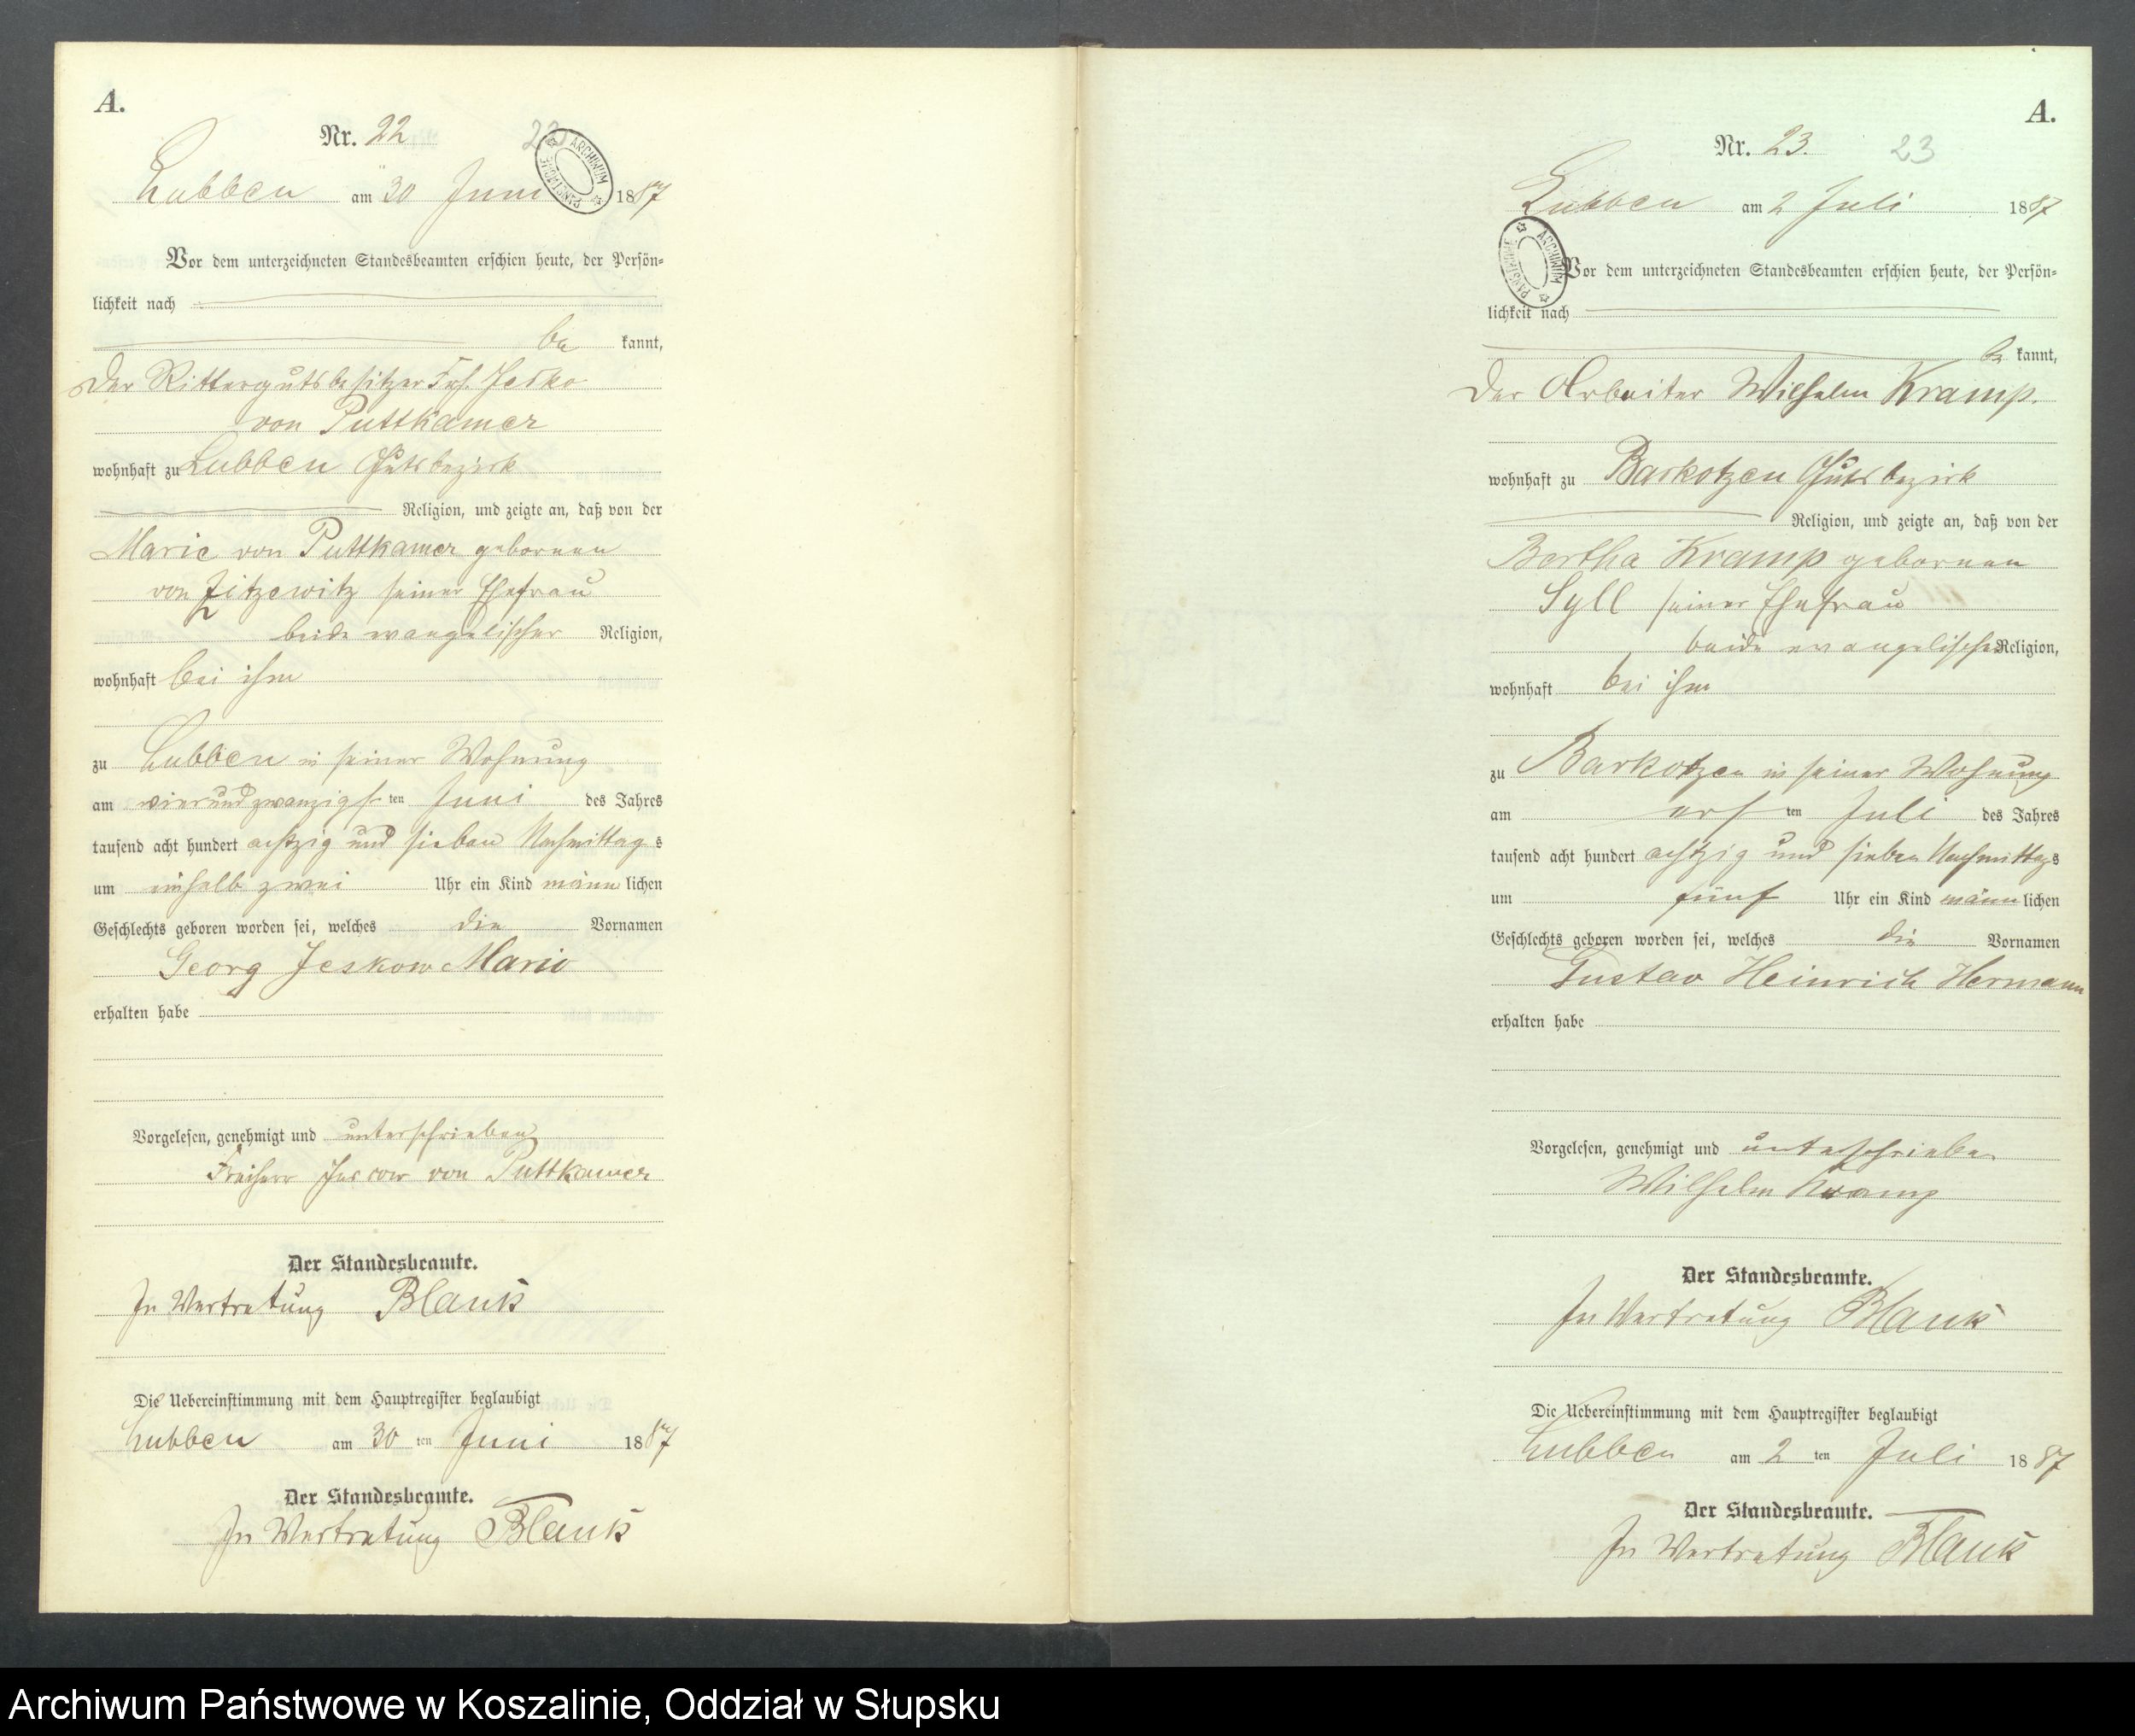 A.
Nr. 22
22
ARCHIWUM PAŃSTWOWE
Lubben am 30 Juni 1887
Vor dem unterzeichneten Standesbeamten erschien heute, der Persön-
lichkeit nach
be kannt,
Der Rittergutsbesitzer Frh. Jesko
von Puttkamer
wohnhaft zu Lubben Gutsbezirk
Religion, und zeigte an, daß von der
Marie von Puttkamer geborenen
von Zitzewitz seiner Ehefrau
beide evangelischer Religion,
wohnhaft bei ihm
zu Lubben in seiner Wohnung
am vierundzwanzigsten Juni des Jahres
tausend acht hundert achtzig und sieben Nachmittags
um einhalb zwei Uhr ein Kind männlichen
Geschlechts geboren worden sei, welches die Vornamen
Georg Jeskow Mario
erhalten habe
Vorgelesen, genehmigt und unterschrieben
Freiherr Jescow von Puttkamer
Der Standesbeamte.
In Vertretung Blank
Die Uebereinstimmung mit dem Hauptregister beglaubigt
Lubben am 30 ten Juni 1887
Der Standesbeamte.
In Vertretung Blank
A.
Nr. 23.
23
Lubben am 2 Juli 1887
ARCHIWUM PAŃSTWOWE
Vor dem unterzeichneten Standesbeamten erschien heute, der Persön-
lichkeit nach
be kannt,
Der Arbeiter Wilhelm Kramp.
wohnhaft zu Barkotzen Gutsbezirk
Religion, und zeigte an, daß von der
Bertha Kramp geborenen
Syll seiner Ehefrau
beide evangelischer Religion,
wohnhaft bei ihm
zu Barkotzen in seiner Wohnung
am ersten Juli des Jahres
tausend acht hundert achtzig und sieben Nachmittags
um fünf Uhr ein Kind männlichen
Geschlechts geboren worden sei, welches die Vornamen
Gustav Heinrich Hermann
erhalten habe
Vorgelesen, genehmigt und unterschrieben
Wilhelm Kramp
Der Standesbeamte.
In Vertretung Blank
Die Uebereinstimmung mit dem Hauptregister beglaubigt
Lubben am 2 ten Juli 1887
Der Standesbeamte.
In Vertretung Blank
Archiwum Państwowe w Koszalinie, Oddział w Słupsku